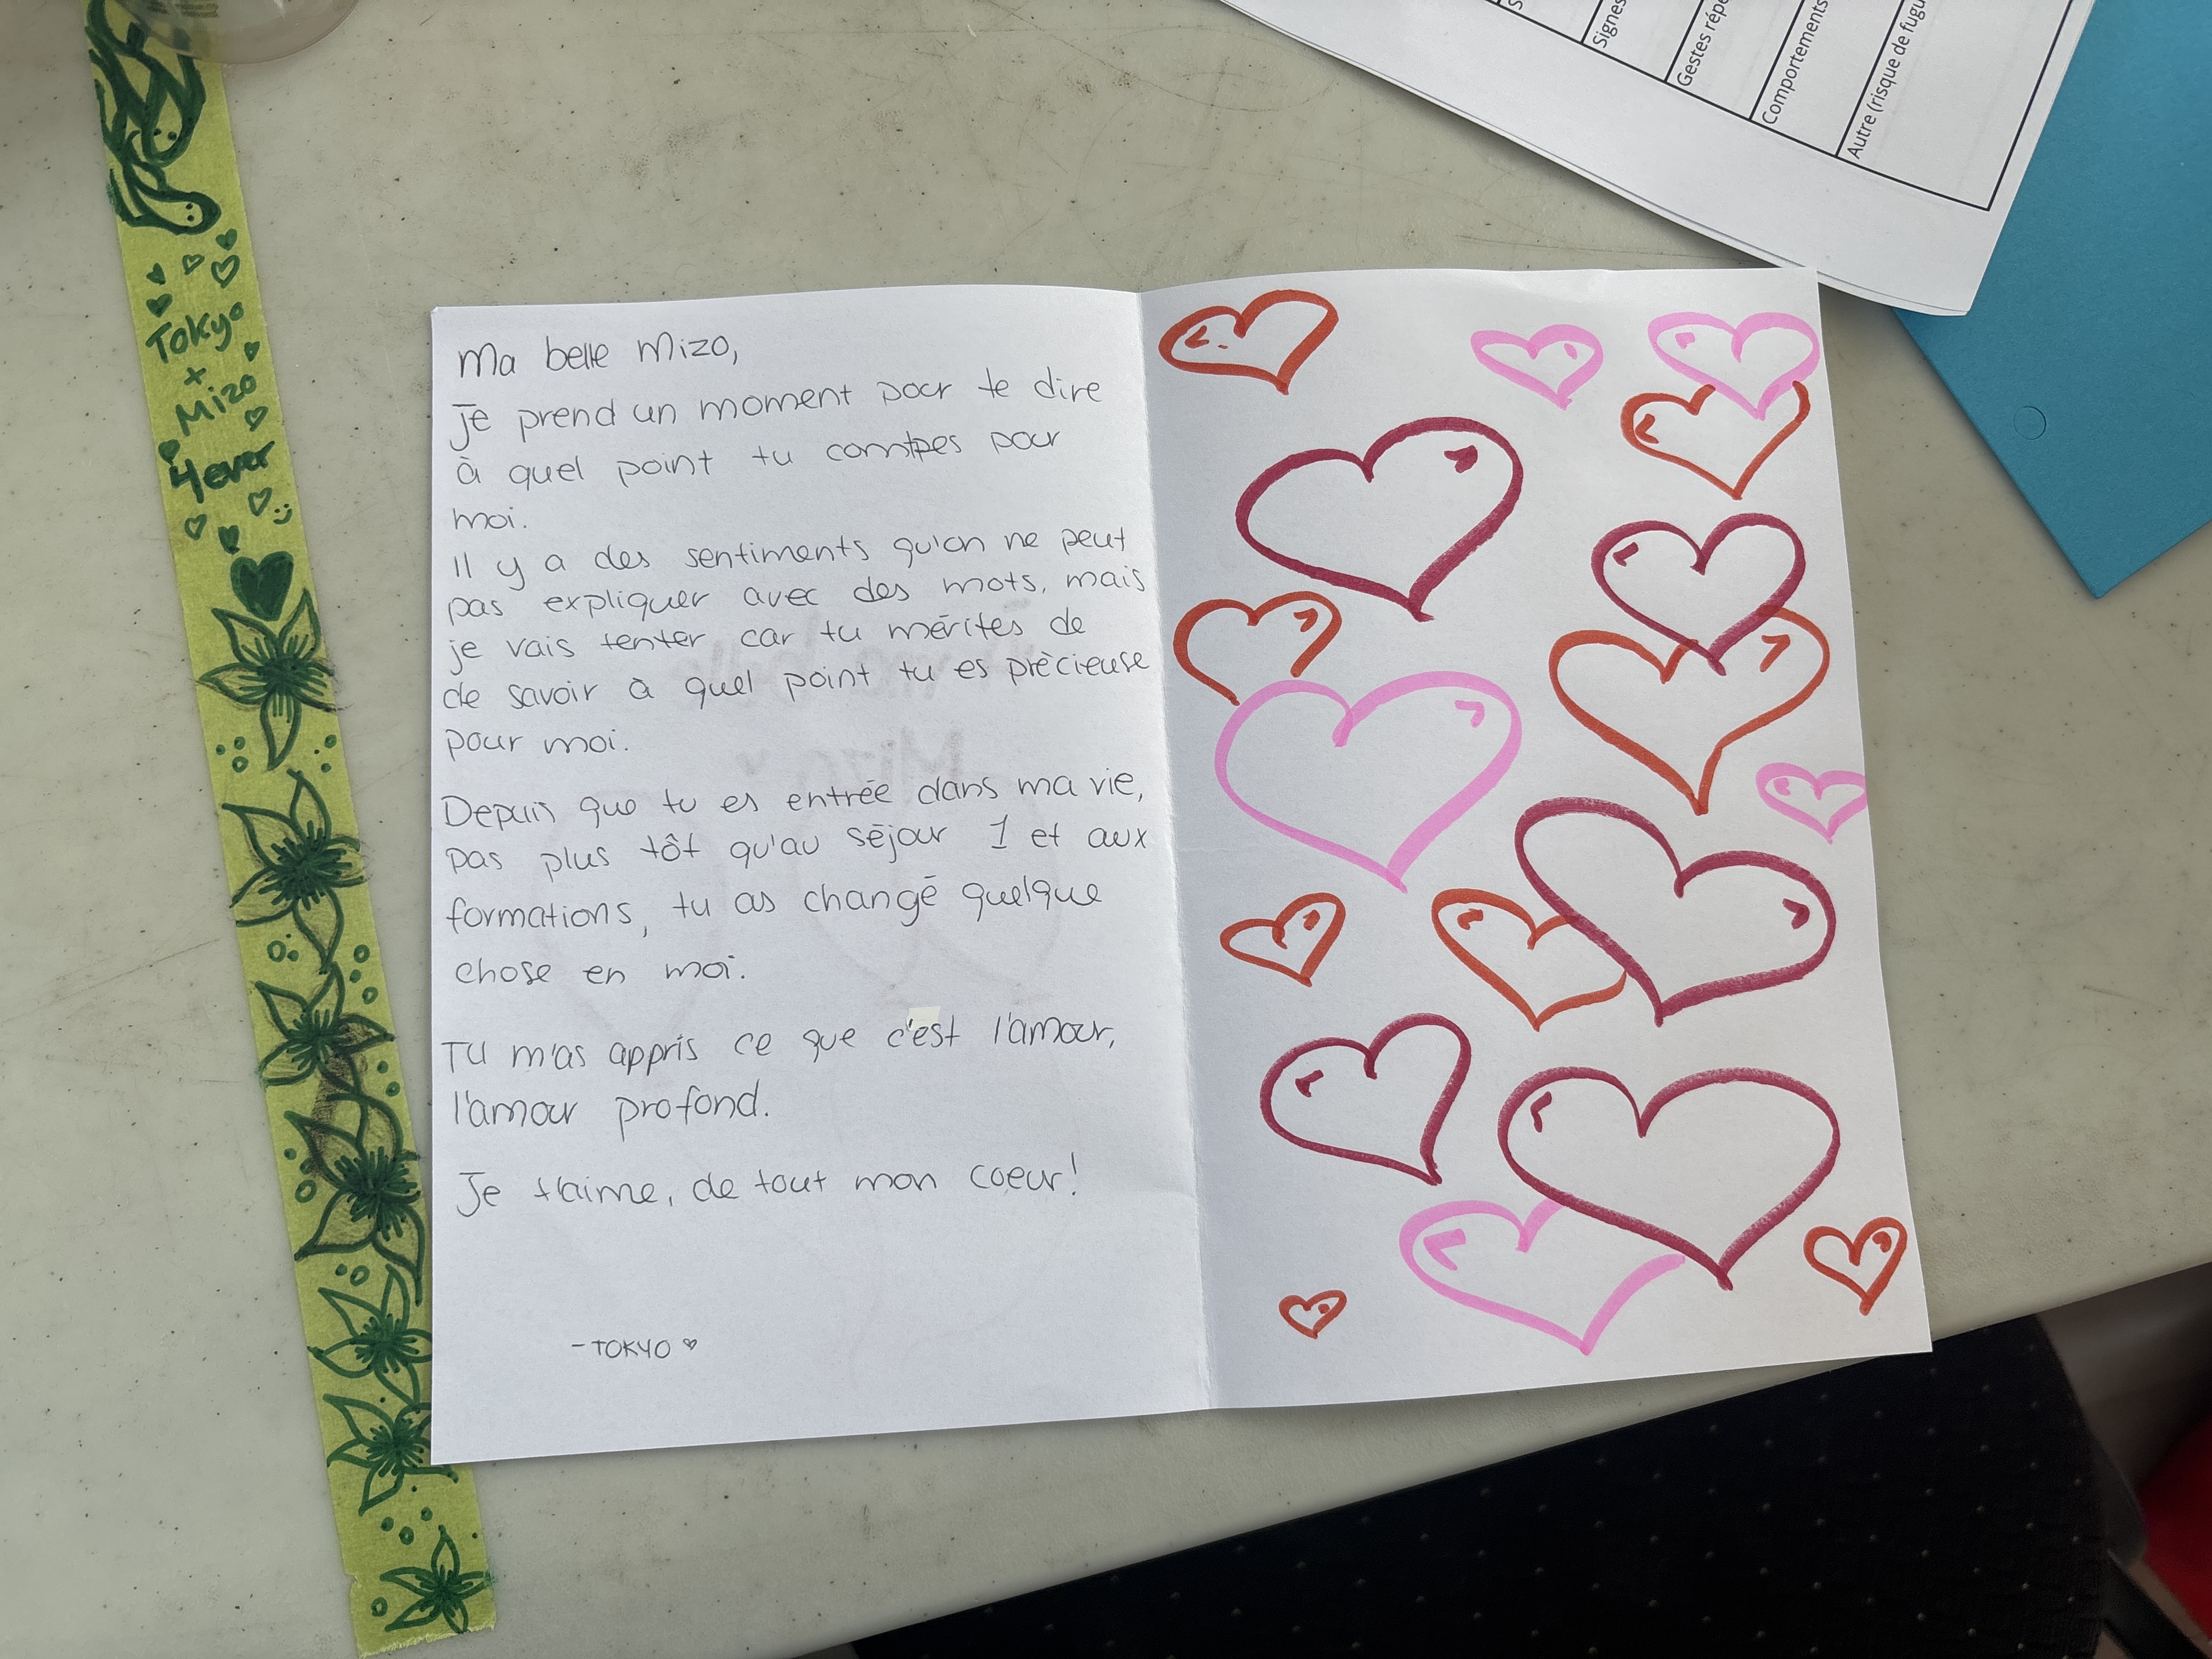 Tokyo
+
Mizo
4ever
Ma belle Mizo,
je prend un moment pour te dire
à quel point tu comptes pour
moi.
Il y a des sentiments qu'on ne peut
pas expliquer avec des mots, mais
je vais tenter car tu mérites de
de savoir à quel point tu es précieuse
pour moi.
Depuis que tu es entrée dans ma vie,
pas plus tôt qu'au séjour 1 et aux
formations, tu as changé quelque
chose en moi.
Tu m'as appris ce que c'est l'amour,
l'amour profond.
Je t'aime, de tout mon coeur!
- TOKYO
Signes
Gestes répé
Comportements
Autre (risque de fugu